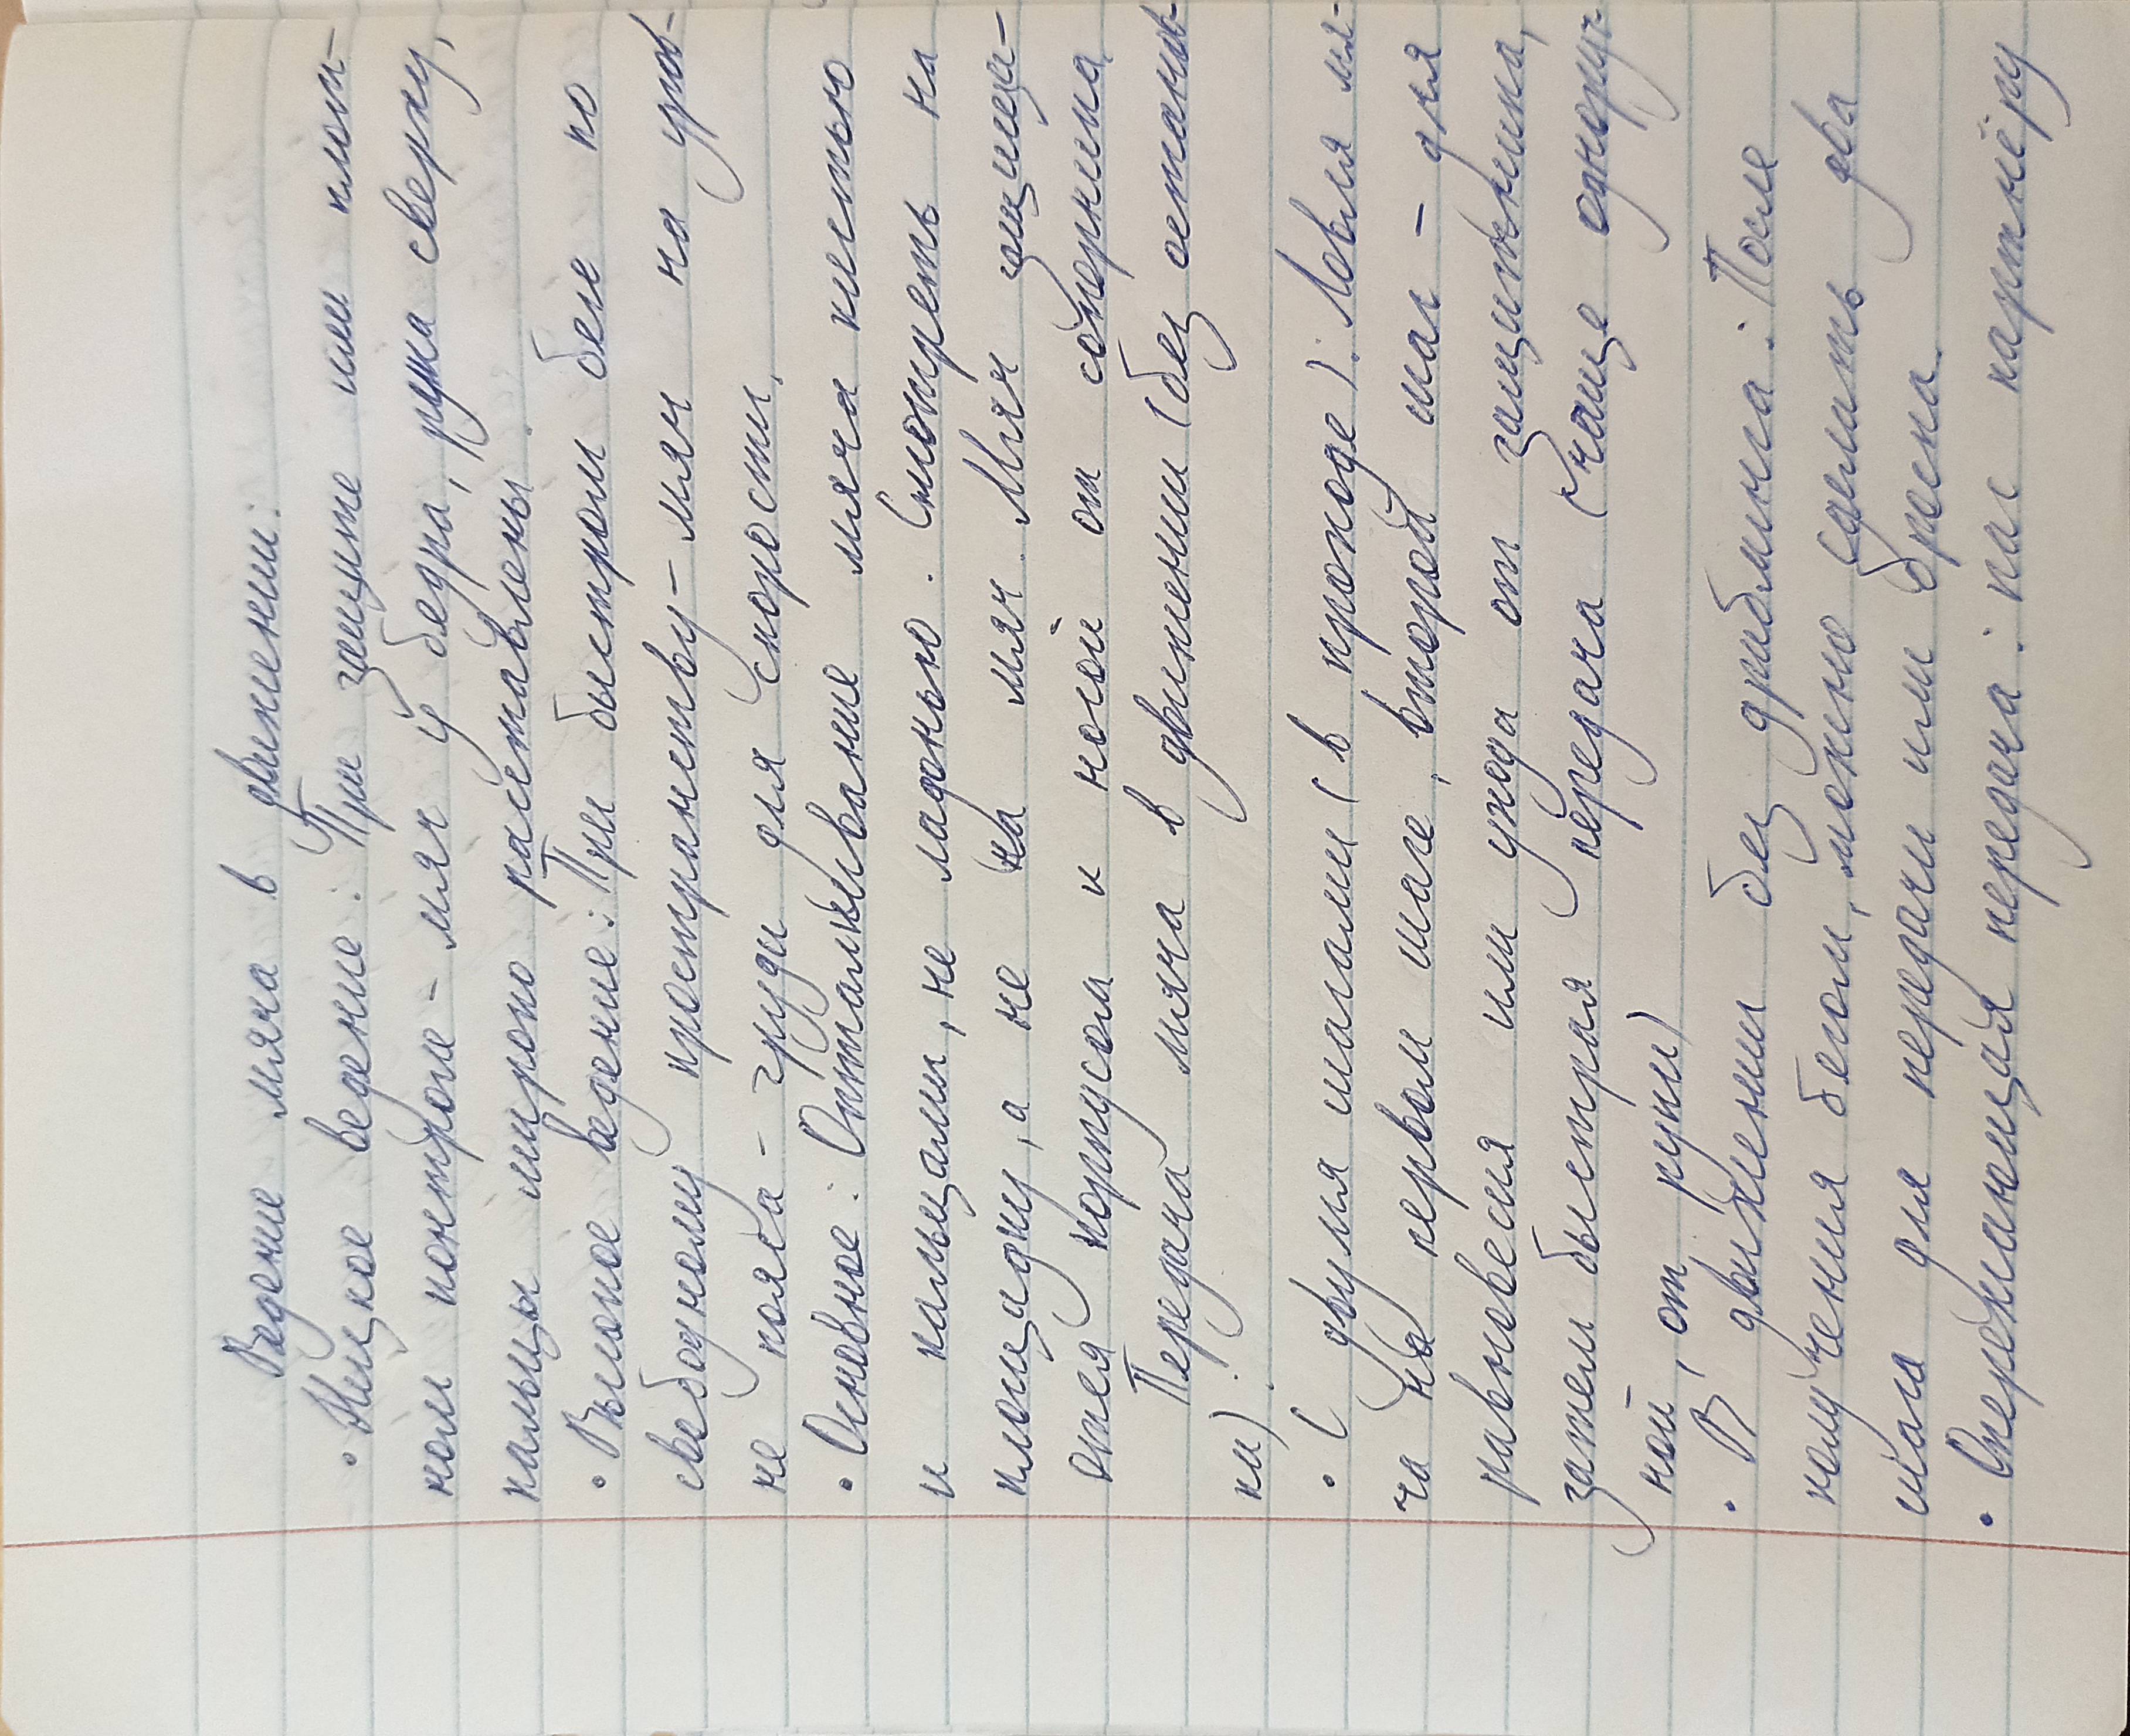 Ведение мяча в движении:
• Низкое ведение: При защите или плот-
ном контроле - мяч у бедра, рука сверху,
пальцы широко расставлены.
• Высокое ведение: При быстром беге по
свободному пространству - мяч на уров-
не пояса - груди для скорости.
• Основное: Отталкивание мяча кистью
и пальцами, не ладонью. Смотреть на
площадку, а не на мяч. Мяч защища-
ется корпусом и ногой от соперника
Передача мяча в движении (без останов-
ки).
• С двумя шагами (в проходе): Ловля мя-
ча на первом шаге, второй шаг - для
равновесия или ухода от защитника,
затем быстрая передача (чаще одноруч-
ной, от руки)
• В движении без дриблинга: После
получения бегом, можно сделать два
шага для передачи или броска.
• Опережающая передача: пас партнёру